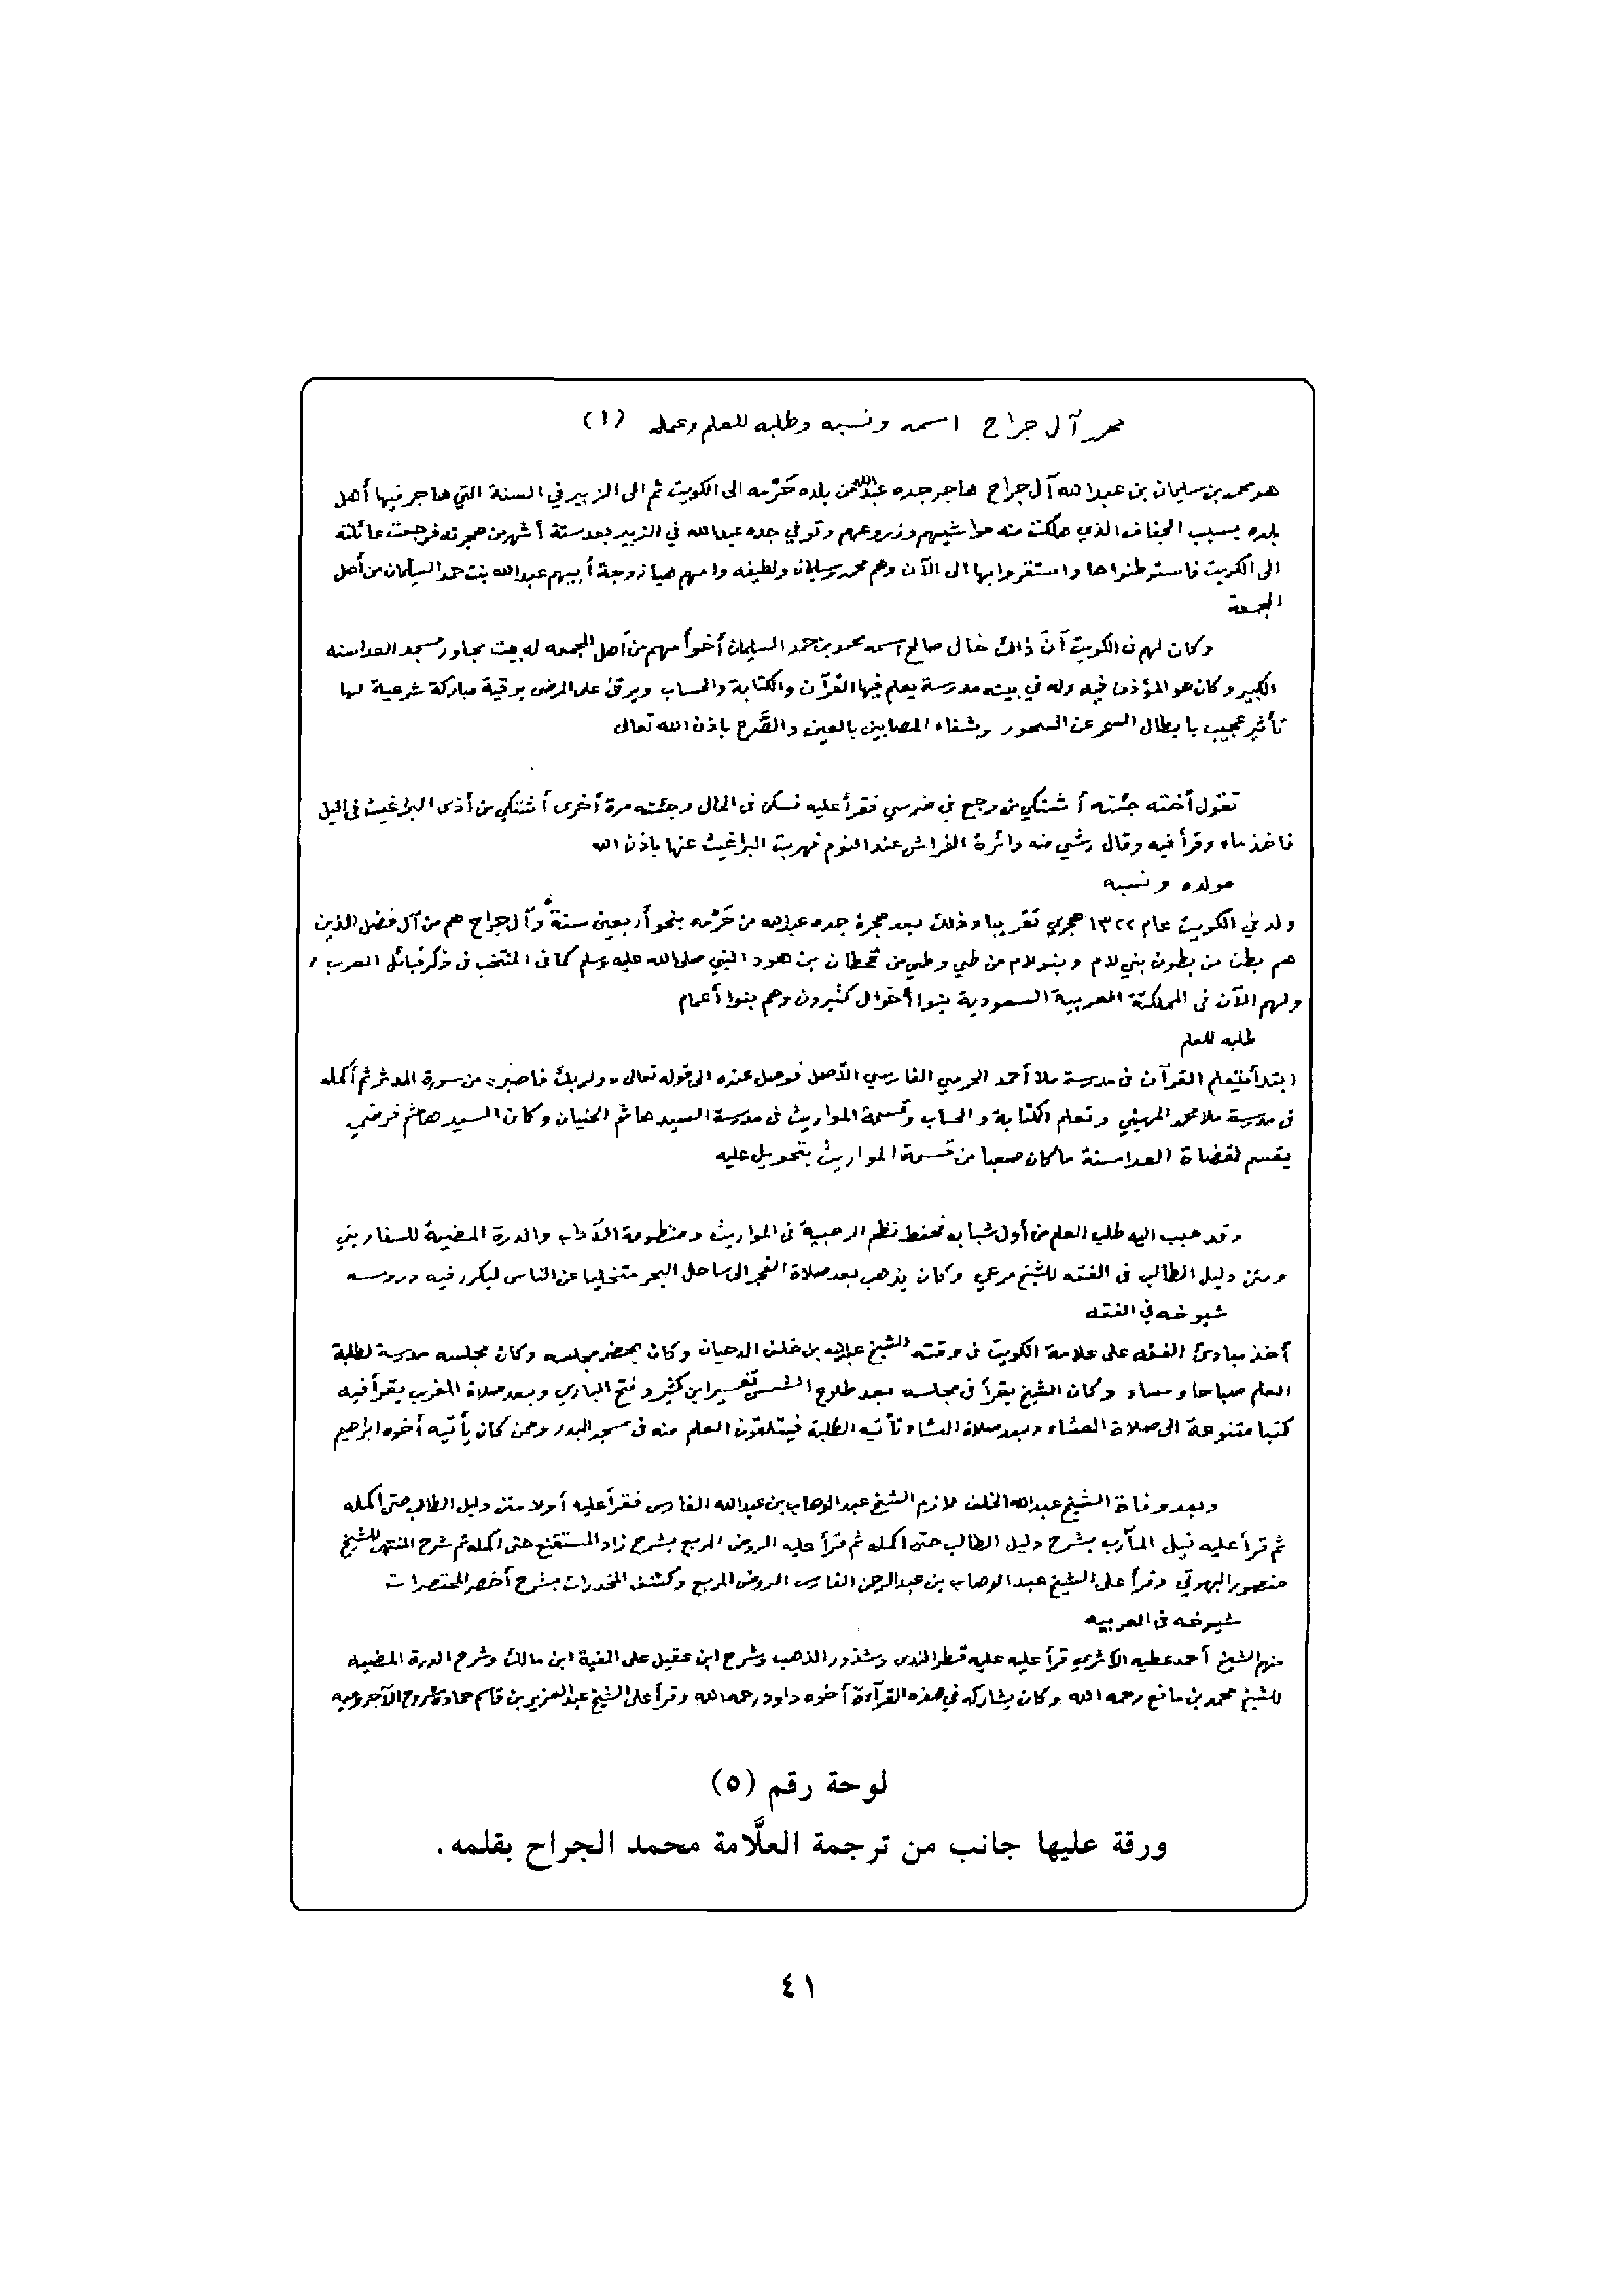 محمد آل جراح اسمه ونسبه وطلبه للعلم وعمله (١)
هو محمد بن سليمان بن عبدالله آل جراح هاجر جده عبدالله من بلده حَرْمه الى الكويت ثم الى الزبير في السنة التي هاجر فيها أهل
بلده بسبب الجفاف الذي هلكت منه مواشيهم وزروعهم وتوفي جده عبدالله في الزبير بعد ستة أشهر من هجرته فرجعت عائلته
الى الكويت فاستوطنواها واستقروا بها الى الآن وهم محمد وسليمان ولطيفه وامهم هيا زوجة أبيهم عبدالله بنت حمد السليمان من أهل
المجمعة
وكان لهم في الكويت آنَ ذاك خال صالح اسمه محمد بن حمد السليمان أخو أمهم من أهل المجمعه له بيت مجاور مسجد العداسنه
الكبير وكان هو المؤذن فيه وله في بيته مدرسة يعلم فيها القرآن والكتابة والحساب ويرقى على المرضى برقية مباركة شرعية لها
تأثير عجيب بابطال السحر عن المسحور وشفاء المصابين بالعين والصَّرع باذن الله تعالى
تقول أخته جئته أشتكي من وجع في ضرسي فقرأ عليه فسكن في الحال وجئته مرة أخرى أشتكي من أذى البراغيث في الليل
فاخذ ماء وقرأ فيه وقال رشي منه دائرة الفراش عند النوم فهربت البراغيث عنها باذن الله
مولده ونسبه
ولد في الكويت عام ١٣٢٢ هجري تقريبا وذلك بعد هجرة جده عبدالله من حَرْمه بنحو أربعين سنة وآل جراح هم من آل فضل الذين
هم بطن من بطون بني لام وبنو لام من طي وطي من قحطان بن هود النبي صلى الله عليه وسلم كما في المنتخب في ذكر قبائل العرب
ولهم الآن في المملكة العربية السعودية بنوا أخوال كثيرون وهم بنوا أعمام
طلبه للعلم
ابتدأ بتعلم القرآن في مدرسة ملا أحمد الحرمي الفارسي الأصل فوصل عنده الى قوله تعالى ولربك فاصبر من سورة المدثر ثم أكمله
في مدرسة ملا محمد المهيني وتعلم الكتابة والحساب وقسمة المواريث في مدرسة السيد هاشم الحنيان وكان السيد هاشم فرضي
يقسم لقضاة العداسنة ما كان صعبا من قسمة المواريث بتحويل عليه
وقد حبب اليه طلب العلم من أول شبابه فحفظ نظم الرحبية في المواريث ومنظومة الآداب والدرة المضية للسفاريني
ومتن دليل الطالب في الفقه للشيخ مرعي وكان يذهب بعد صلاة الفجر الى ساحل البحر متخليا عن الناس ليكرر فيه دروسه
شيوخه في الفقه
أخذ مبادئ الفقه على علامة الكويت في وقته الشيخ عبدالله بن خلف الدحيان وكان يحضر مجلسه وكان مجلسه مدرسة لطلبة
العلم صباحا ومساء وكان الشيخ يقرأ في مجلسه بعد طلوع الشمس تفسير ابن كثير وفتح الباري وبعد صلاة المغرب يقرأ فيه
كتبا متنوعة الى صلاة العشاء وبعد صلاة العشاء تأتيه الطلبة فيتلقون العلم منه في مسجد البدر وممن كان يأتيه أخوه ابراهيم
وبعد وفاة الشيخ عبدالله الخلف لازم الشيخ عبدالوهاب بن عبدالله الفارس فقرأ عليه أولا متن دليل الطالب حتى اكمله
ثم قرأ عليه نيل المآرب بشرح دليل الطالب حتى اكمله ثم قرأ عليه الروض المربع بشرح زاد المستقنع حتى اكمله ثم شرح المنتهى للشيخ
منصور البهوتي وقرأ على الشيخ عبدالوهاب بن عبدالرحمن الفارس الروض المربع وكشف المخدرات بشرح أخصر المختصرات
شيوخه في العربيه
منهم الشيخ أحمد عطيه الأثري قرأ عليه عليه قطر الندى وشذور الذهب وشرح ابن عقيل على الفية ابن مالك وشرح الدرة المضيه
للشيخ محمد بن مانع رحمه الله وكان يشاركه في هذه القرآءة أخوه داود رحمه الله وقرأ على الشيخ عبدالعزيز بن قاسم حماده شروح الآجروميه
لوحة رقم (٥)
ورقة عليها جانب من ترجمة العلَّامة محمد الجراح بقلمه.
٤١